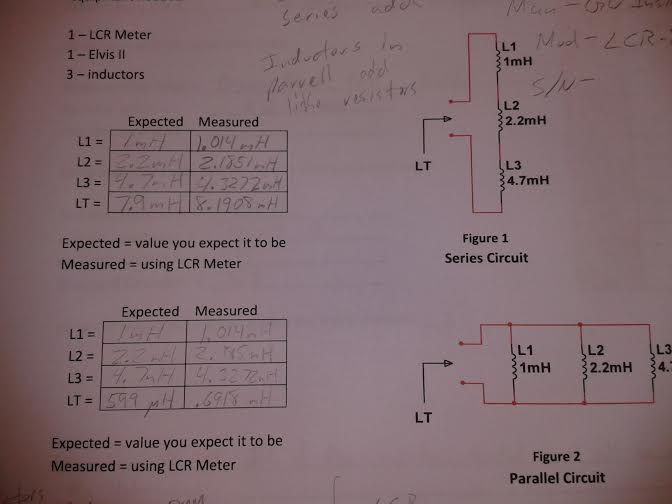 series add
1 – LCR Meter
1 – Elvis II
3 – inductors
Inductors in
parrell add
like resistors
Man -
Mod - LCR-
S/N -
Expected Measured
L1 = 1mH 1.014mH
L2 = 2.2mH 2.1851mH
L3 = 4.7mH 4.3272mH
LT = 7.9mH 8.1908mH
Expected = value you expect it to be
Measured = using LCR Meter
L1
1mH
L2
2.2mH
L3
4.7mH
LT
Figure 1
Series Circuit
Expected Measured
L1 = 1mH 1.014mH
L2 = 2.2mH 2.185mH
L3 = 4.7mH 4.3272mH
LT = 599 µH .6918 mH
Expected = value you expect it to be
Measured = using LCR Meter
L1
1mH
L2
2.2mH
L3
4.
LT
Figure 2
Parallel Circuit